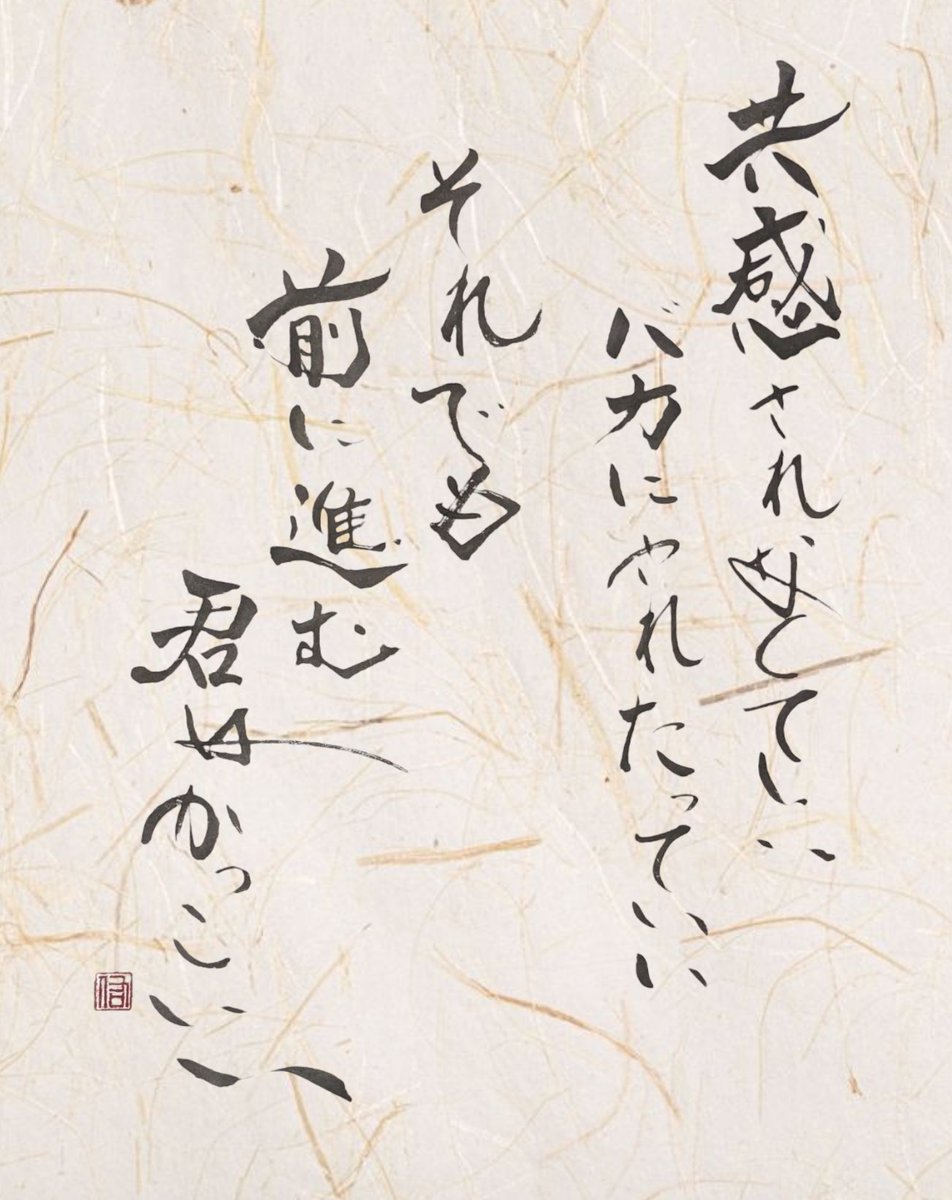 共感されなくていい
バカにされたっていい
それでも
前に進む
君はかっこいい
信